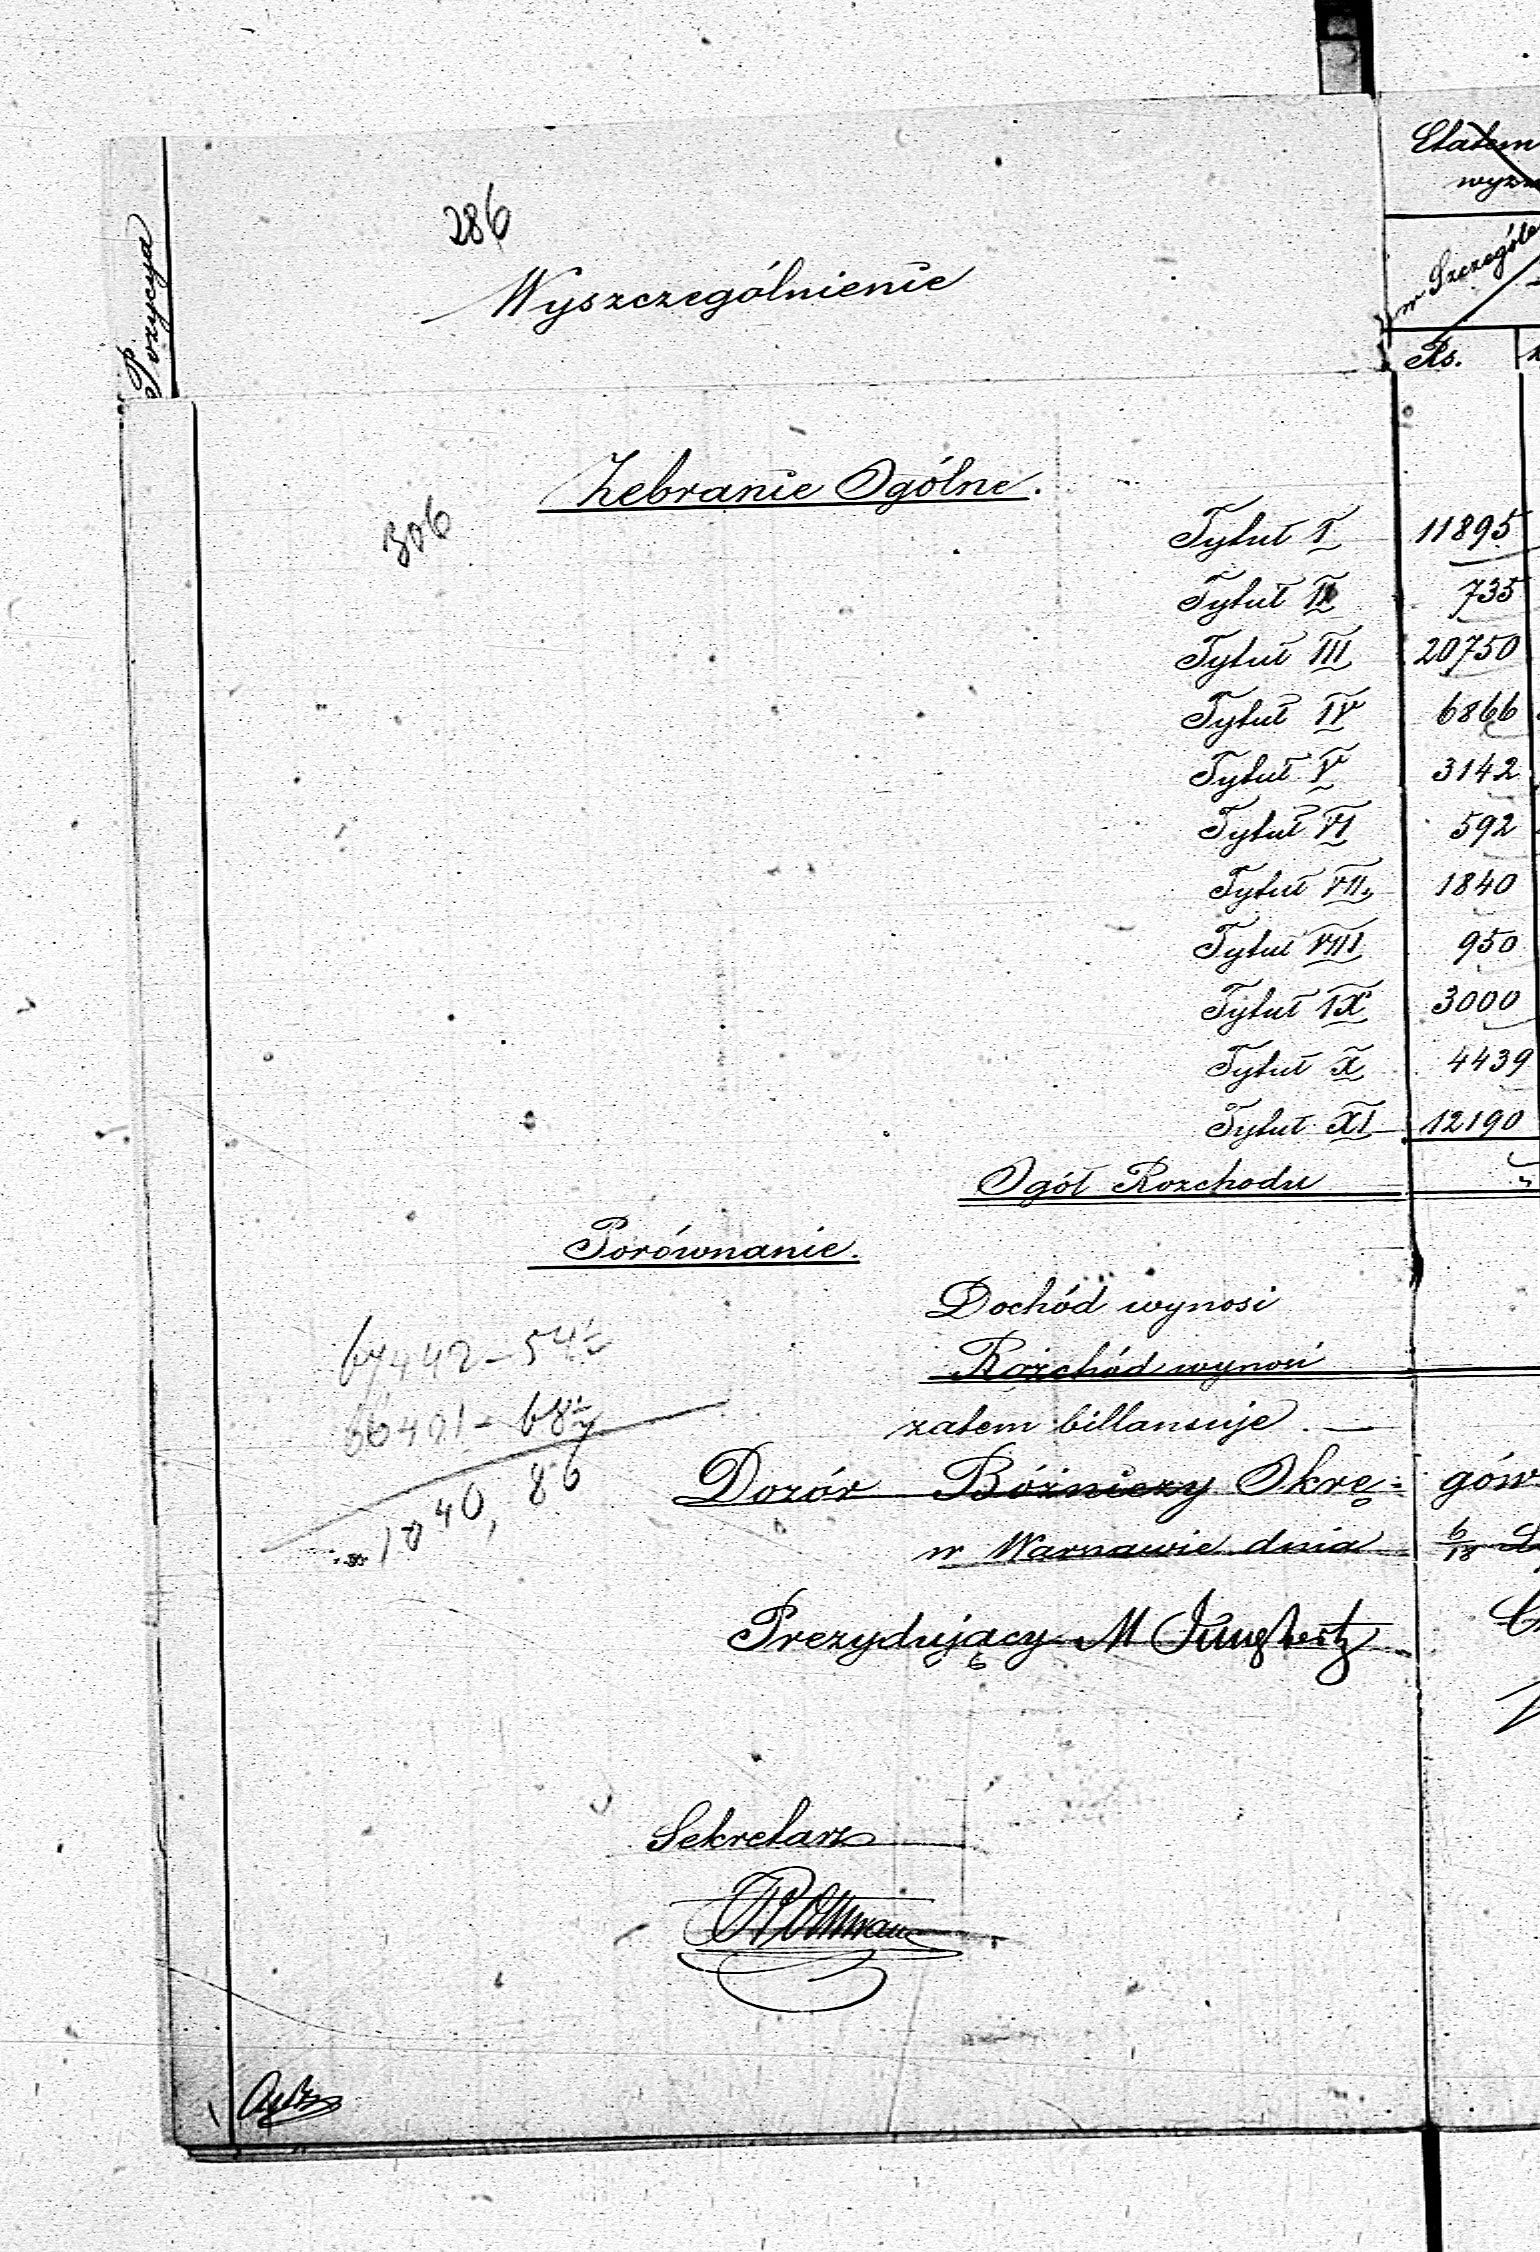 Pozycya
286
Wyszczególnienie
Etatem
w Szczególe
Rs.
Zebranie Ogólne.
306
Tytuł I 11895
Tytuł II 735
Tytuł III 20750
Tytuł IV 6866
Tytuł V 3142
Tytuł VI 592
Tytuł VII 1840
Tytuł VIII 950
Tytuł IX 3000
Tytuł X 4439
Tytuł XI 12190
Ogół Rozchodu
Porównanie.
Dochód wynosi
Rozchód wynosi
zatem billansuje.
67442-54½
66401-68½
1040,86
Dozór Bóżniczy Okrę- gów
w Warszawie dnia 6/18
Prezydujący M
Sekretarz